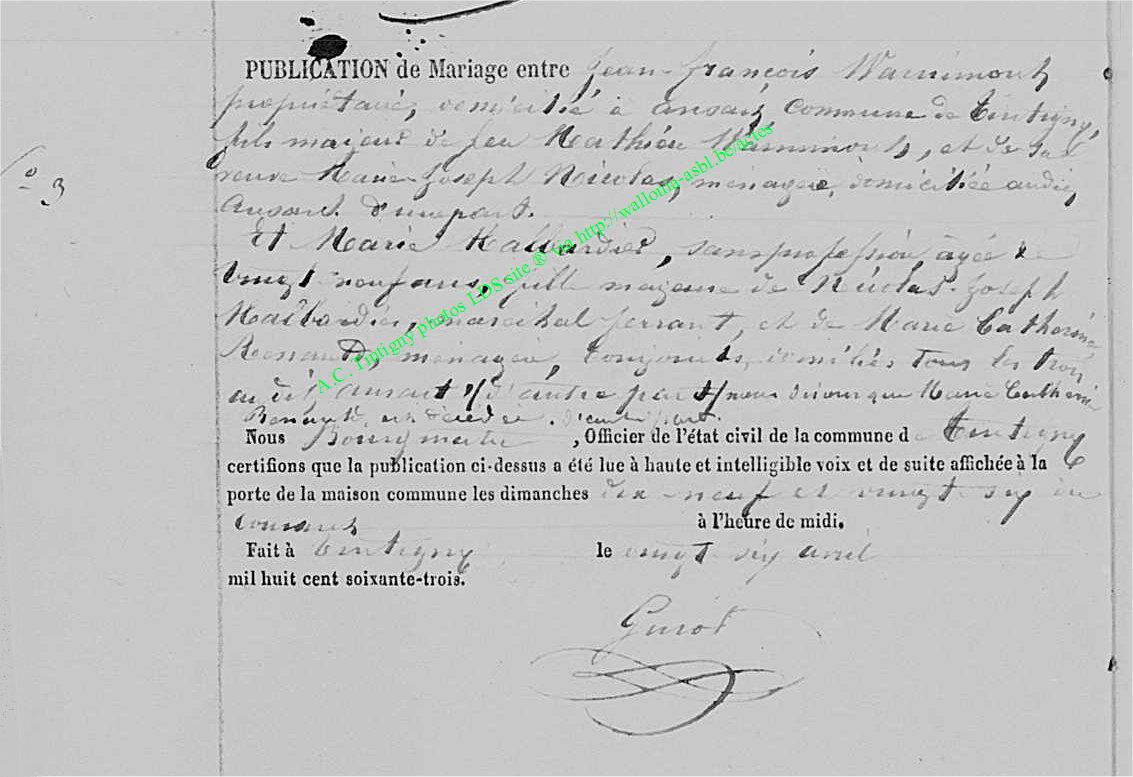 PUBLICATION de Mariage entre Jean-françois Warnimont
propriétaire, domicilié à ansart, commune de Tintigny,
fils majeur de feu Mathieu Warnimont, et de sa
veuve Marie-Joseph Nicolas, ménagère, domiciliée audit
ansart d'une part.
N° 3
Et Marie Halbardier, sans profession, agée de
vingt neuf ans, fille majeure de Nicolas-Joseph
Halbardier, maréchal ferrant, et de Marie Catherine
Renauld, ménagère, conjoints, domiciliés tous les trois
au dit ansart d'autre part nous disons que Marie Catherine
Renauld, est décédée. d'autre part.
Nous Bourgmestre, Officier de l'état civil de la commune de Tintigny
certifions que la publication ci-dessus a été lue à haute et intelligible voix et de suite affichée à la
porte de la maison commune les dimanches dix-neuf et vingt-six du
courant à l'heure de midi.
Fait à Tintigny le vingt-six avril
mil huit cent soixante-trois.
Guiot
A.C. Tintigny photos LDS site ® via http://wallonia-asbl.be/actes